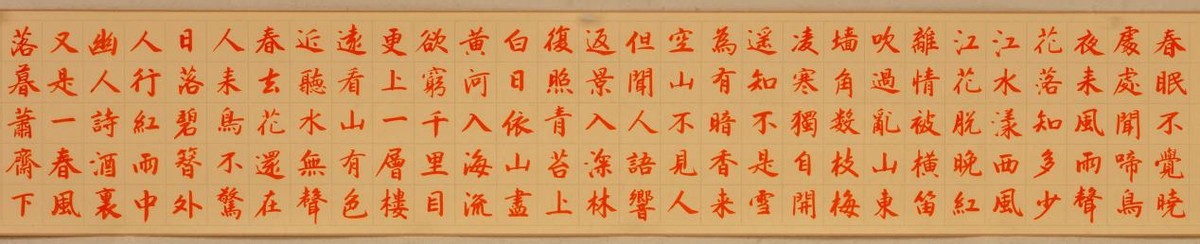 春眠不覺曉
處處聞啼鳥
夜来風雨聲
花落知多少
江水漾西風
江花脱晚紅
離情被横笛
吹過亂山東
墙角数枝梅
凌寒獨自開
遥知不是雪
為有暗香来
空山不見人
但聞人語響
返景入深林
復照青苔上
白日依山盡
黄河入海流
欲窮千里目
更上一層楼
遠看山有色
近聽水無聲
春去花還在
人来鳥不驚
日落碧簪外
人行紅雨中
幽人詩酒裏
又是一春風
落暮蕭齋下